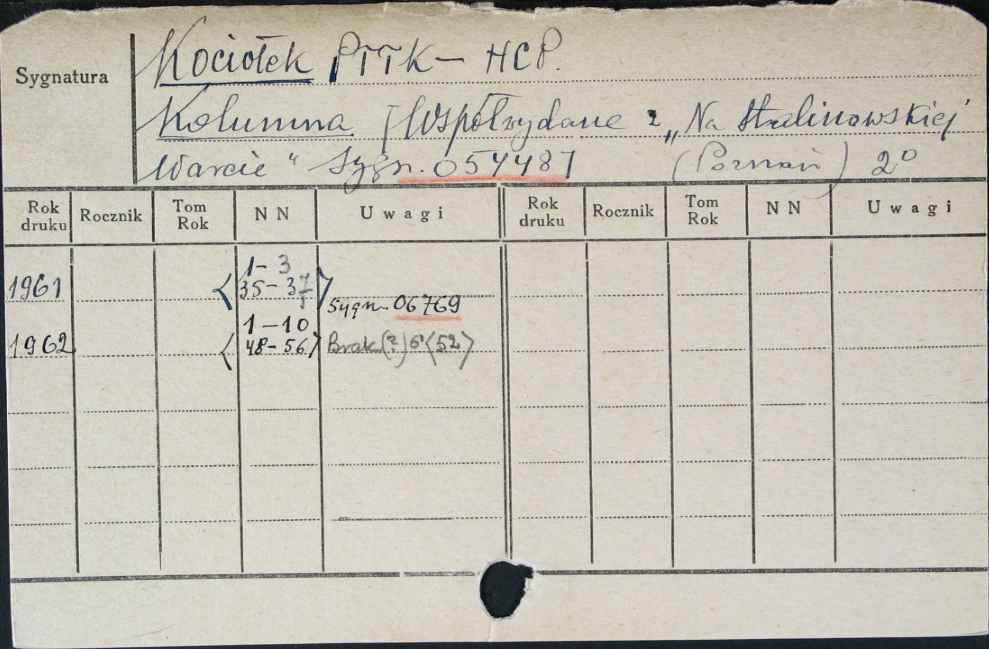 Sygnatura
Kociołek PTTK - HCP.
Kolumna [Współwydane z „Na Stalinowskiej
Warcie" Sygn. 054487 (Poznań) 2°
Rok druku Rocznik Tom Rok NN Uwagi Rok druku Rocznik Tom Rok NN Uwagi
1-3
1961 <35-37>
Sygn. 06769
1-10
1962 <48-56> Brak (?) 6 <52>